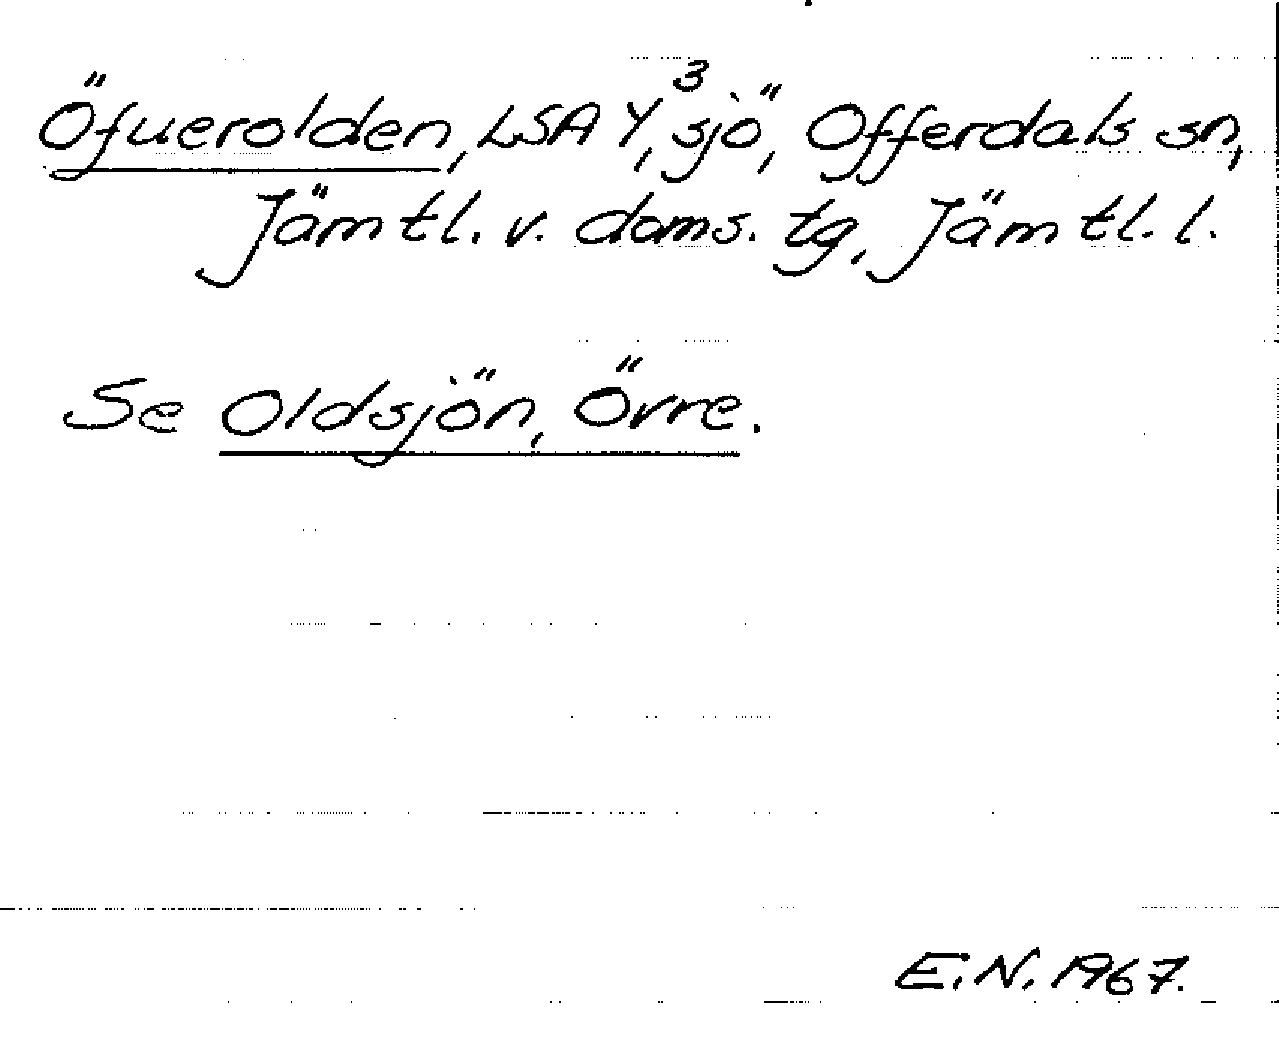 Öfuerolden, LSA Y³, sjö, Offerdals sn,
Jämtl. v. doms. tg, Jämtl. l.
Se Oldsjön, Övre.
E.N. 1967.